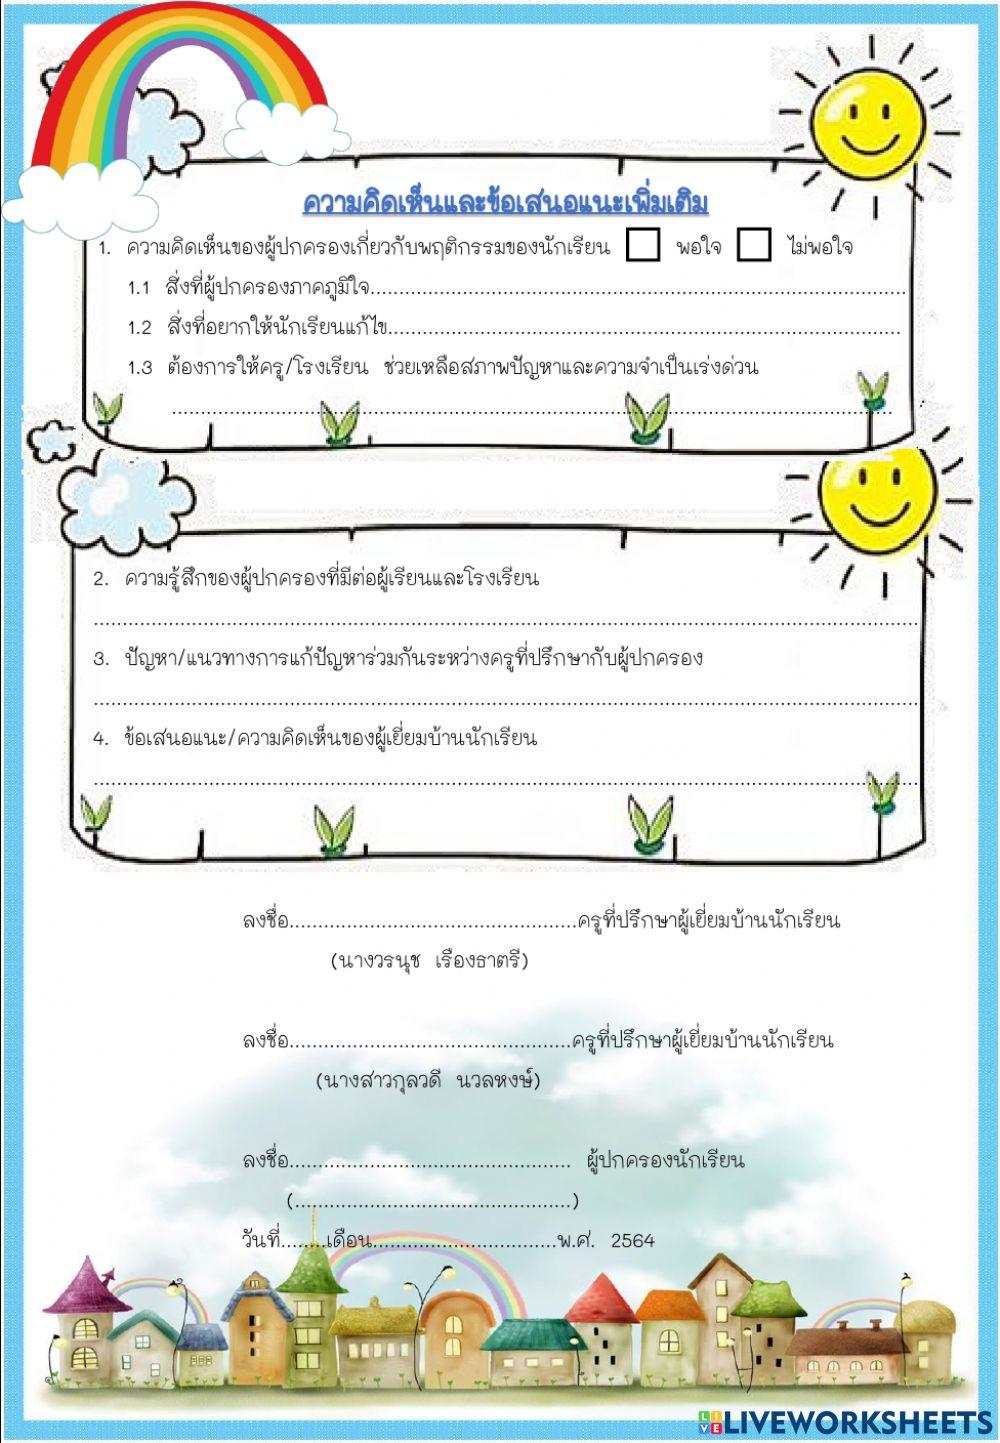 ความคิดเห็นและข้อเสนอแนะเพิ่มเติม
1. ความคิดเห็นของผู้ปกครองเกี่ยวกับพฤติกรรมของนักเรียน พอใจ ไม่พอใจ
1.1 สิ่งที่ผู้ปกครองภาคภูมิใจ..........................................................................................
1.2 สิ่งที่อยากให้นักเรียนแก้ไข......................................................................................
1.3 ต้องการให้ครู/โรงเรียน ช่วยเหลือสภาพปัญหาและความจำเป็นเร่งด่วน
........................................................................................................................
2. ความรู้สึกของผู้ปกครองที่มีต่อผู้เรียนและโรงเรียน
............................................................................................................................................
3. ปัญหา/แนวทางการแก้ปัญหาร่วมกันระหว่างครูที่ปรึกษากับผู้ปกครอง
............................................................................................................................................
4. ข้อเสนอแนะ/ความคิดเห็นของผู้เยี่ยมบ้านนักเรียน
............................................................................................................................................
ลงชื่อ.................................................ครูที่ปรึกษาผู้เยี่ยมบ้านนักเรียน
(นางวรนุช เรืองธาตรี)
ลงชื่อ................................................ครูที่ปรึกษาผู้เยี่ยมบ้านนักเรียน
(นางสาวกุลวดี นวลหงษ์)
ลงชื่อ................................................ ผู้ปกครองนักเรียน
(...............................................)
วันที่........เดือน................................พ.ศ. 2564
LIVEWORKSHEETS